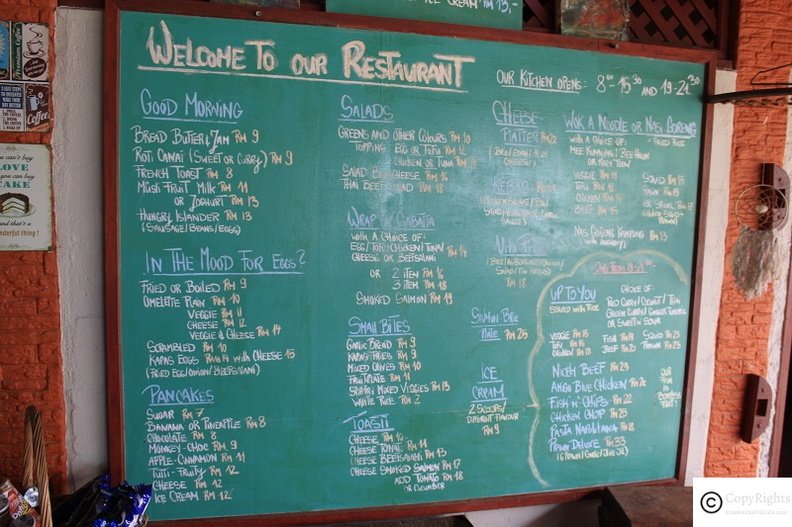 ICE CREAM RM 13.-
WELCOME TO OUR RESTAURANT
OUR KITCHEN OPENS: 8.00 - 15.30 AND 19-21.30
GOOD MORNING
BREAD BUTTER & JAM RM 9
ROTI CANAI (SWEET OR CURRY) RM 9
FRENCH TOAST RM 8
MUSLI FRUIT MILK RM 11
OR JOGHURT RM 13
HUNGRY ISLANDER RM 13
(SAUSAGE/BEANS/EGGS)
IN THE MOOD FOR EGGS?
FRIED OR BOILED RM 9
OMELETTE PLAIN RM 10
VEGGIE RM 11
CHEESE RM 12
VEGGIE & CHEESE RM 14
SCRAMBLED RM 10
KAPAS EGGS RM 14 WITH CHEESE 15
(FRIED EGG/ONION/BEEFSALAMI)
PANCAKES
SUGAR RM 7
BANANA OR PINEAPPLE RM 8
CHOCOLATE RM 8
MONKEY-CHOC RM 9
APPLE-CINNAMON RM 11
TUTTI-FRUITY RM 12
CHEESE RM 12
ICE CREAM RM 12
SALADS
GREENS AND OTHER COLOURS RM 10
TOPPING EGG OR TOFU RM 12
CHICKEN OR TUNA RM
SALAD BLUE CHEESE RM 16
THAI BEEF SALAD RM 18
WRAP OR CIABATTA
WITH A CHOICE OF:
EGG/TOFU/CHICKEN/TUNA/
CHEESE OR BEEFSALAMI RM 14
OR 2 ITEM RM 16
3 ITEM RM 18
SMOKED SALMON RM 19
SMALL BITES
GARLIC BREAD RM 9
KAPAS FRIES RM 9
MIXED OLIVES RM 10
FRUITPLATE RM 11
STIRFRY MIXED VEGGIES RM 13
WHITE RICE RM 2
TOASTI
CHEESE RM 10
CHEESE TOMATO RM 11
CHEESE BEEFSALAMI RM 15
CHEESE SMOKED SALMON RM 17
ADD TOMATO RM 18
OR CUCUMBER
CHEESE
PLATTER RM 22
CHEESE)
KEBAB
SAUCE)
RM 18
SALMON
PLATE RM 25
ICE
CREAM
2 SCOOPS/
DIFFERENT FLAVOUR
RM 9
WOK A NOODLE OR NASI GORENG
WITH A CHOICE OF: - FRIED RICE
MEE KUNING/BEEHOON
OR KOEY TEOW
VEGGIE RM 11
TOFU RM 11
CHICKEN RM 14
BEEF RM 15
SQUID RM 15
PRAWN RM 18
NASI GORENG KAMPUNG RM 13
UP TO YOU
SERVED WITH RICE
CHOICE OF:
OR SWEET N SOUR
VEGGIE RM 15
TOFU RM 15
CHICKEN RM 18
FISH RM 18
BEEF RM 23
SQUID RM 23
PRAWN RM 23
NICEN BEEF RM 23
ANGO BLUE CHICKEN RM 22
FISH'N' CHIPS RM 22
CHICKEN CHOP RM 25
PASTA NAPOLITANA RM 18
PRAWN DELUXE RM 33
OUR
FISH
IS
BONELESS
FRUIT!
Premium Coffee
Coffee
You can't buy
LOVE
you can buy
CAKE
and that's a
wonderful thing!
© CopyRights